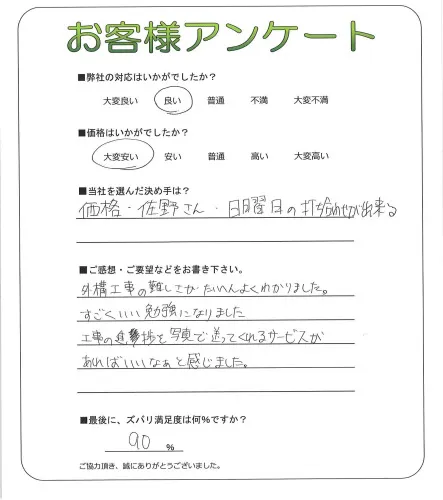 お客様アンケート
■弊社の対応はいかがでしたか?
大変良い 良い 普通 不満 大変不満
■価格はいかがでしたか?
大変安い 安い 普通 高い 大変高い
■当社を選んだ決め手は?
価格・佐野さん・日曜日の打ち合わせが出来る
■ご感想・ご要望などをお書き下さい。
外構工事の難しさがたいへんよくわかりました。
すごくいい勉強になりました
工事の進捗を写真で送ってくれるサービスが
あればいいなぁと感じました。
■最後に、ズバリ満足度は何%ですか?
90 %
ご協力頂き、誠にありがとうございました。